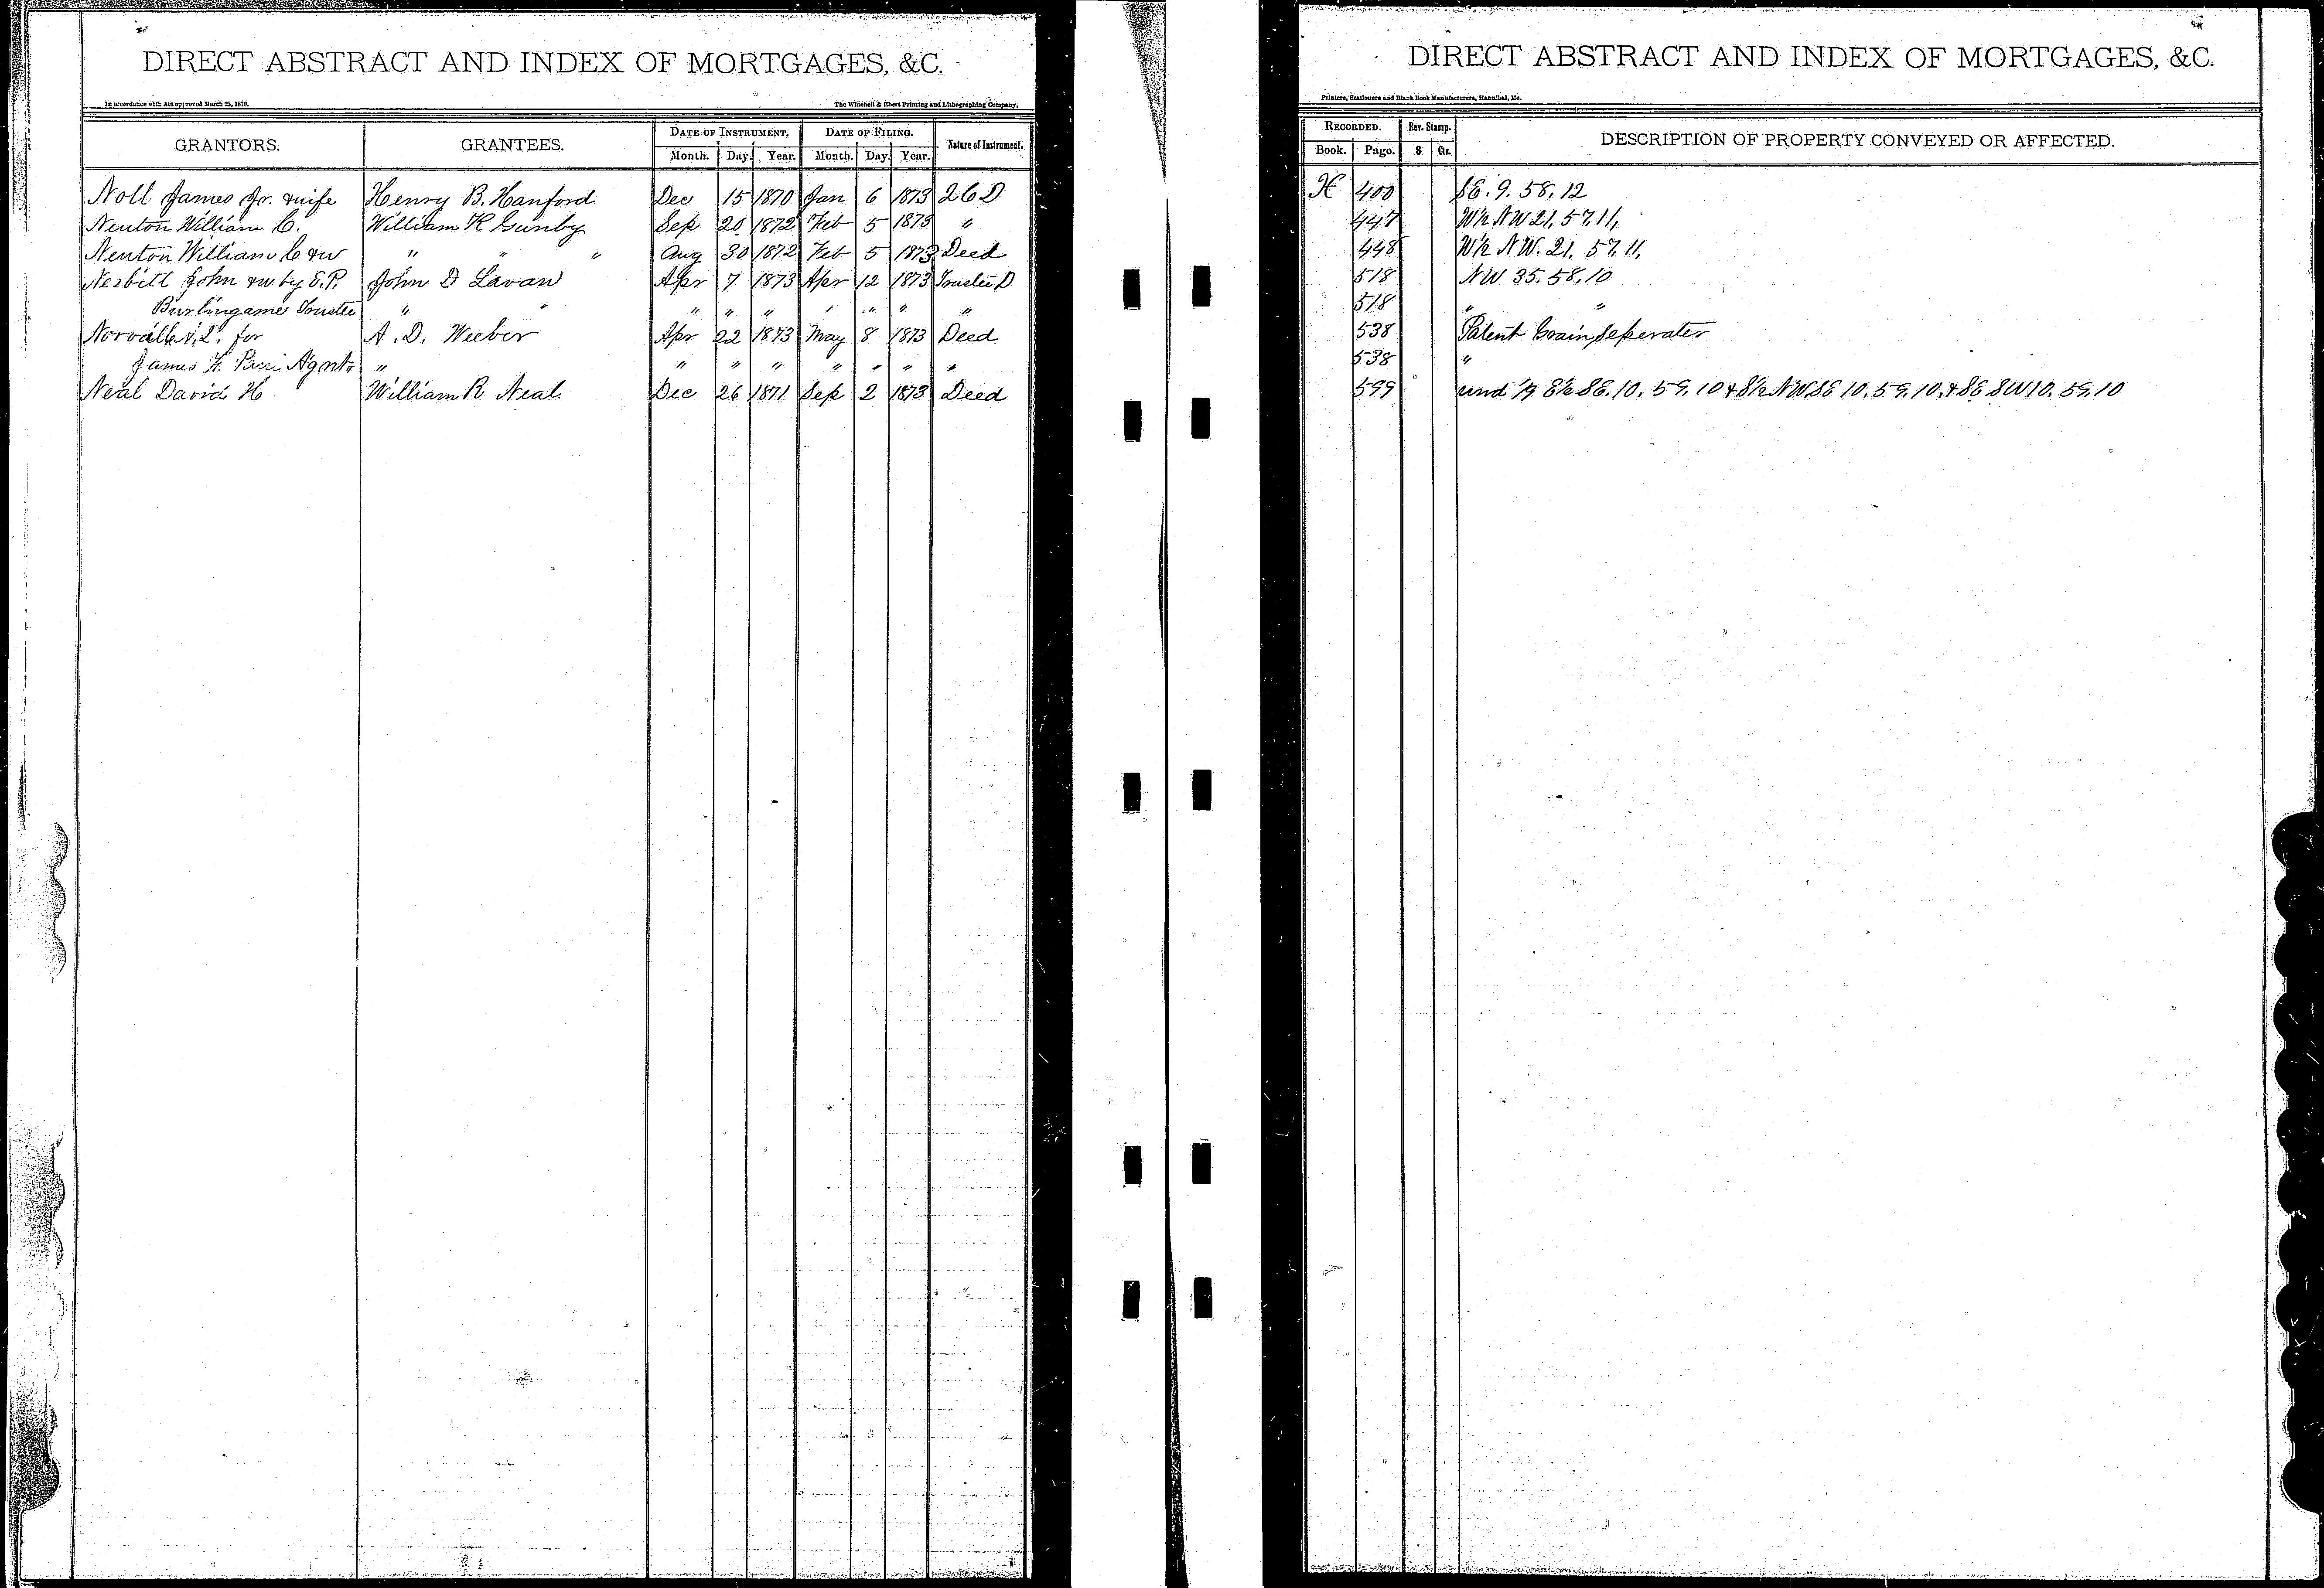 DIRECT ABSTRACT AND INDEX OF MORTGAGES, &C.
In accordance with Act approved March 25, 1870. The Winchell & Ebert Printing and Lithographing Company,
GRANTORS. GRANTEES. DATE OF INSTRUMENT. DATE OF FILING. Nature of Instrument.
Month. Day. Year. Month. Day. Year.
Noll James Jr. & wife Henry B. Hanford Dec 15 1870 Jan 6 1873
Newton William C. William R Gunby Sep 20 1872 Feb 5 1873 "
Newton William C & w " " " Aug 30 1872 Feb 5 1873 Deed
Nesbitt John & w by E.P. John D Lavan Apr 7 1873 Apr 12 1873 Trustee D
Burlingame Trustee " " " " " " " " "
for A. D. Weeber Apr 22 1873 May 8 1873 Deed
James " " " " " " " "
Neal David H William R Neal Dec 26 1871 Sep 2 1873 Deed
DIRECT ABSTRACT AND INDEX OF MORTGAGES, &C.
Printers, Stationers and Blank Book Manufacturers, Hannibal, Mo.
RECORDED. Rev. Stamp. DESCRIPTION OF PROPERTY CONVEYED OR AFFECTED.
Book. Page. $ Cts.
H 400 SE. 9. 58. 12
447 W½ NW 21, 57, 11,
448 W½ NW. 21. 57, 11,
518 NW 35. 58. 10
518 " "
538 Patent Grain Seperater
538 "
599 und E½ SE. 10. 59. 10 & S½ NW SE 10. 59. 10. & SE SW 10. 59. 10